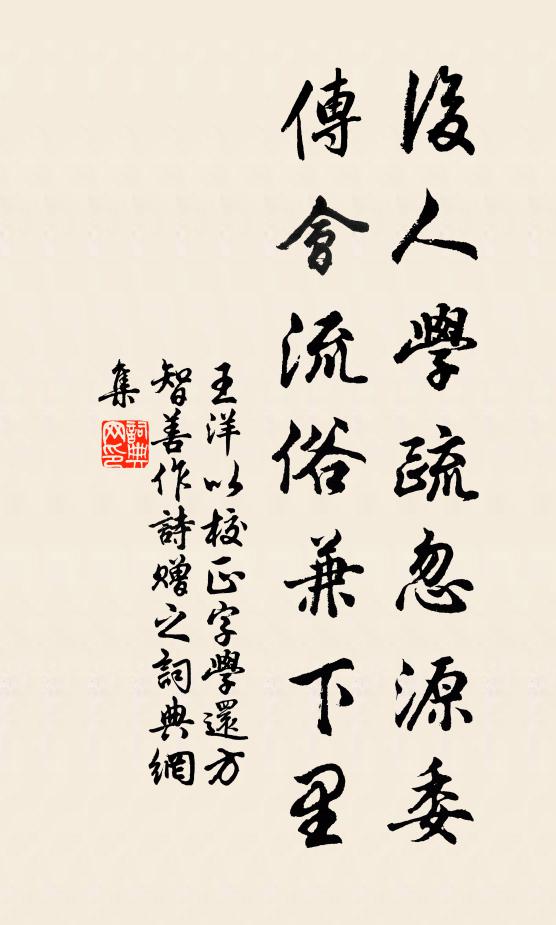 後人學疏忽源委
傅會流俗兼下里
王洋以校正字學還方
智善作詩贈之詞典網
集
詞典
网印